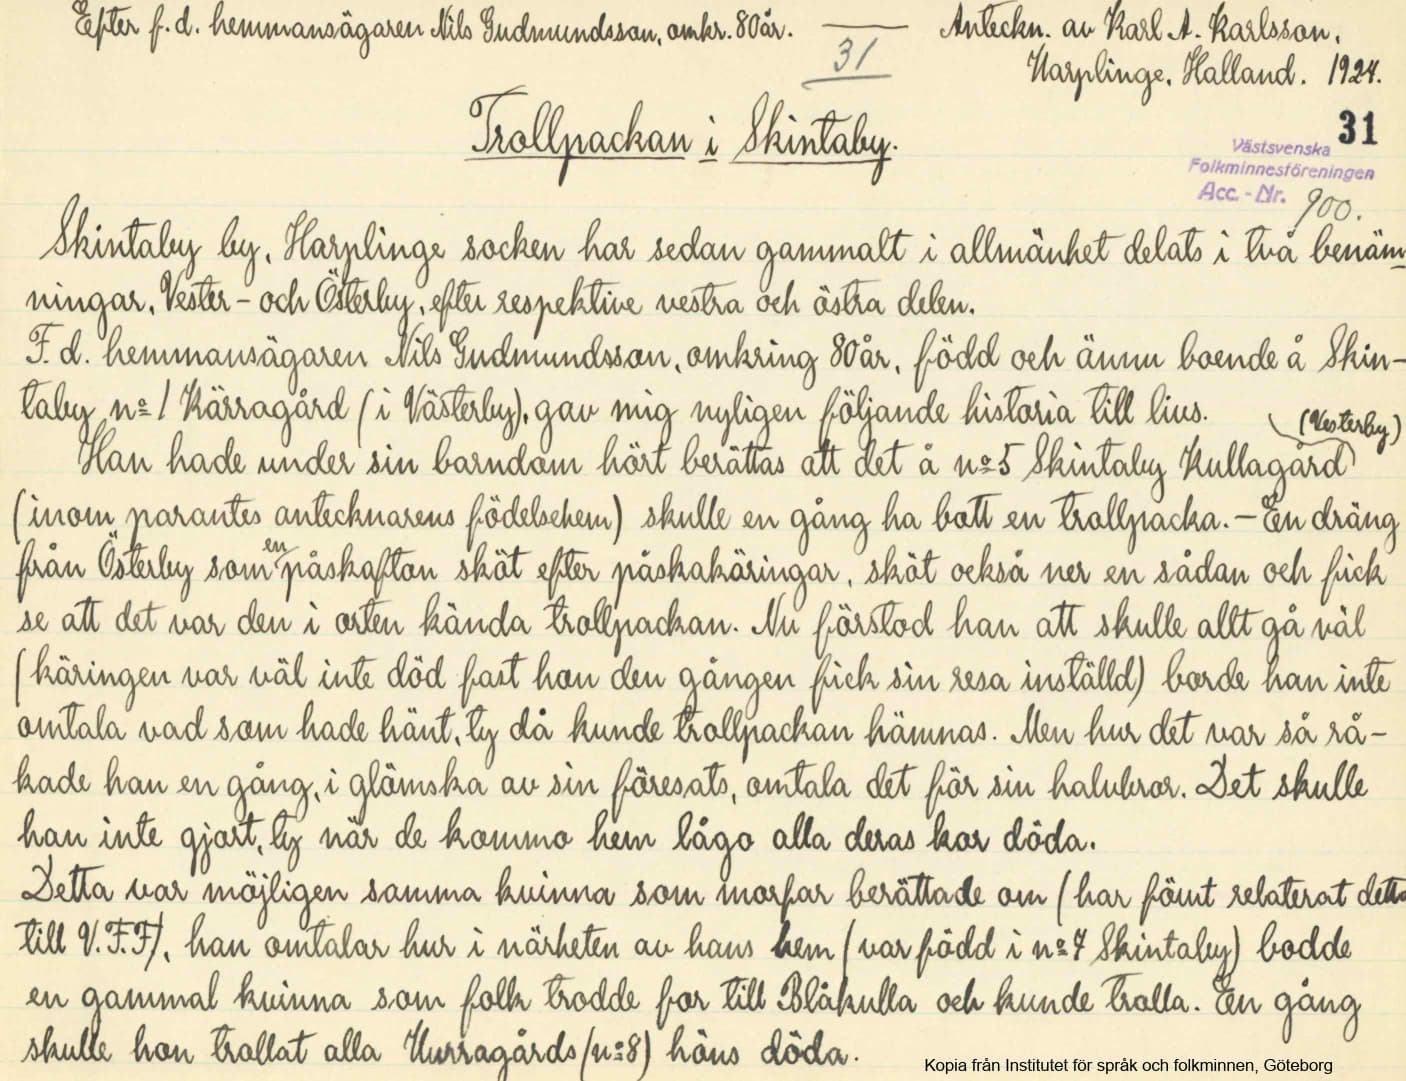 Efter f. d. hemmansägaren Nils Gudmundsson, omkr. 80 år.
Anteckn. av Karl A. Karlsson,
31
Harplinge, Halland. 1924.
31
Trollpackan i Skintaby.
Västsvenska
Folkminnesföreningen
Acc.-Nr. 900.
Skintaby by, Harplinge socken har sedan gammalt i allmänhet delats i två benäm-
ningar, Vester- och Österby, efter respektive vestra och östra delen.
F. d. hemmansägaren Nils Gudmundsson, omkring 80 år, född och ännu boende å Skin-
taby no 1 Kärragård (i Västerby), gav mig nyligen följande historia till livs.
(Vesterby)
Han hade under sin barndom hört berättas att det å no 5 Skintaby Kullagård
(inom parantes antecknarens födelsehem) skulle en gång ha bott en trollpacka. – En dräng
från Österby som en påskafton sköt efter påskakäringar, sköt också ner en sådan och fick
se att det var den i orten kända trollpackan. Nu förstod han att skulle allt gå väl
(käringen var väl inte död fast hon den gången fick sin resa inställd) borde han inte
omtala vad som hade hänt, ty då kunde trollpackan hämnas. Men hur det var så rå-
kade han en gång, i glömska av sin föresats, omtala det för sin halvbror. Det skulle
han inte gjort, ty när de kommo hem lågo alla deras kor döda.
Detta var möjligen samma kvinna som morfar berättade om (har förut relaterat detta
till V. F. F), han omtalar hur i närheten av hans hem (var född i no 7 Skintaby) bodde
en gammal kvinna som folk trodde for till Blåkulla och kunde trolla. En gång
skulle hon trollat alla Hurragårds (no 8) höns döda.
Kopia från Institutet för språk och folkminnen, Göteborg